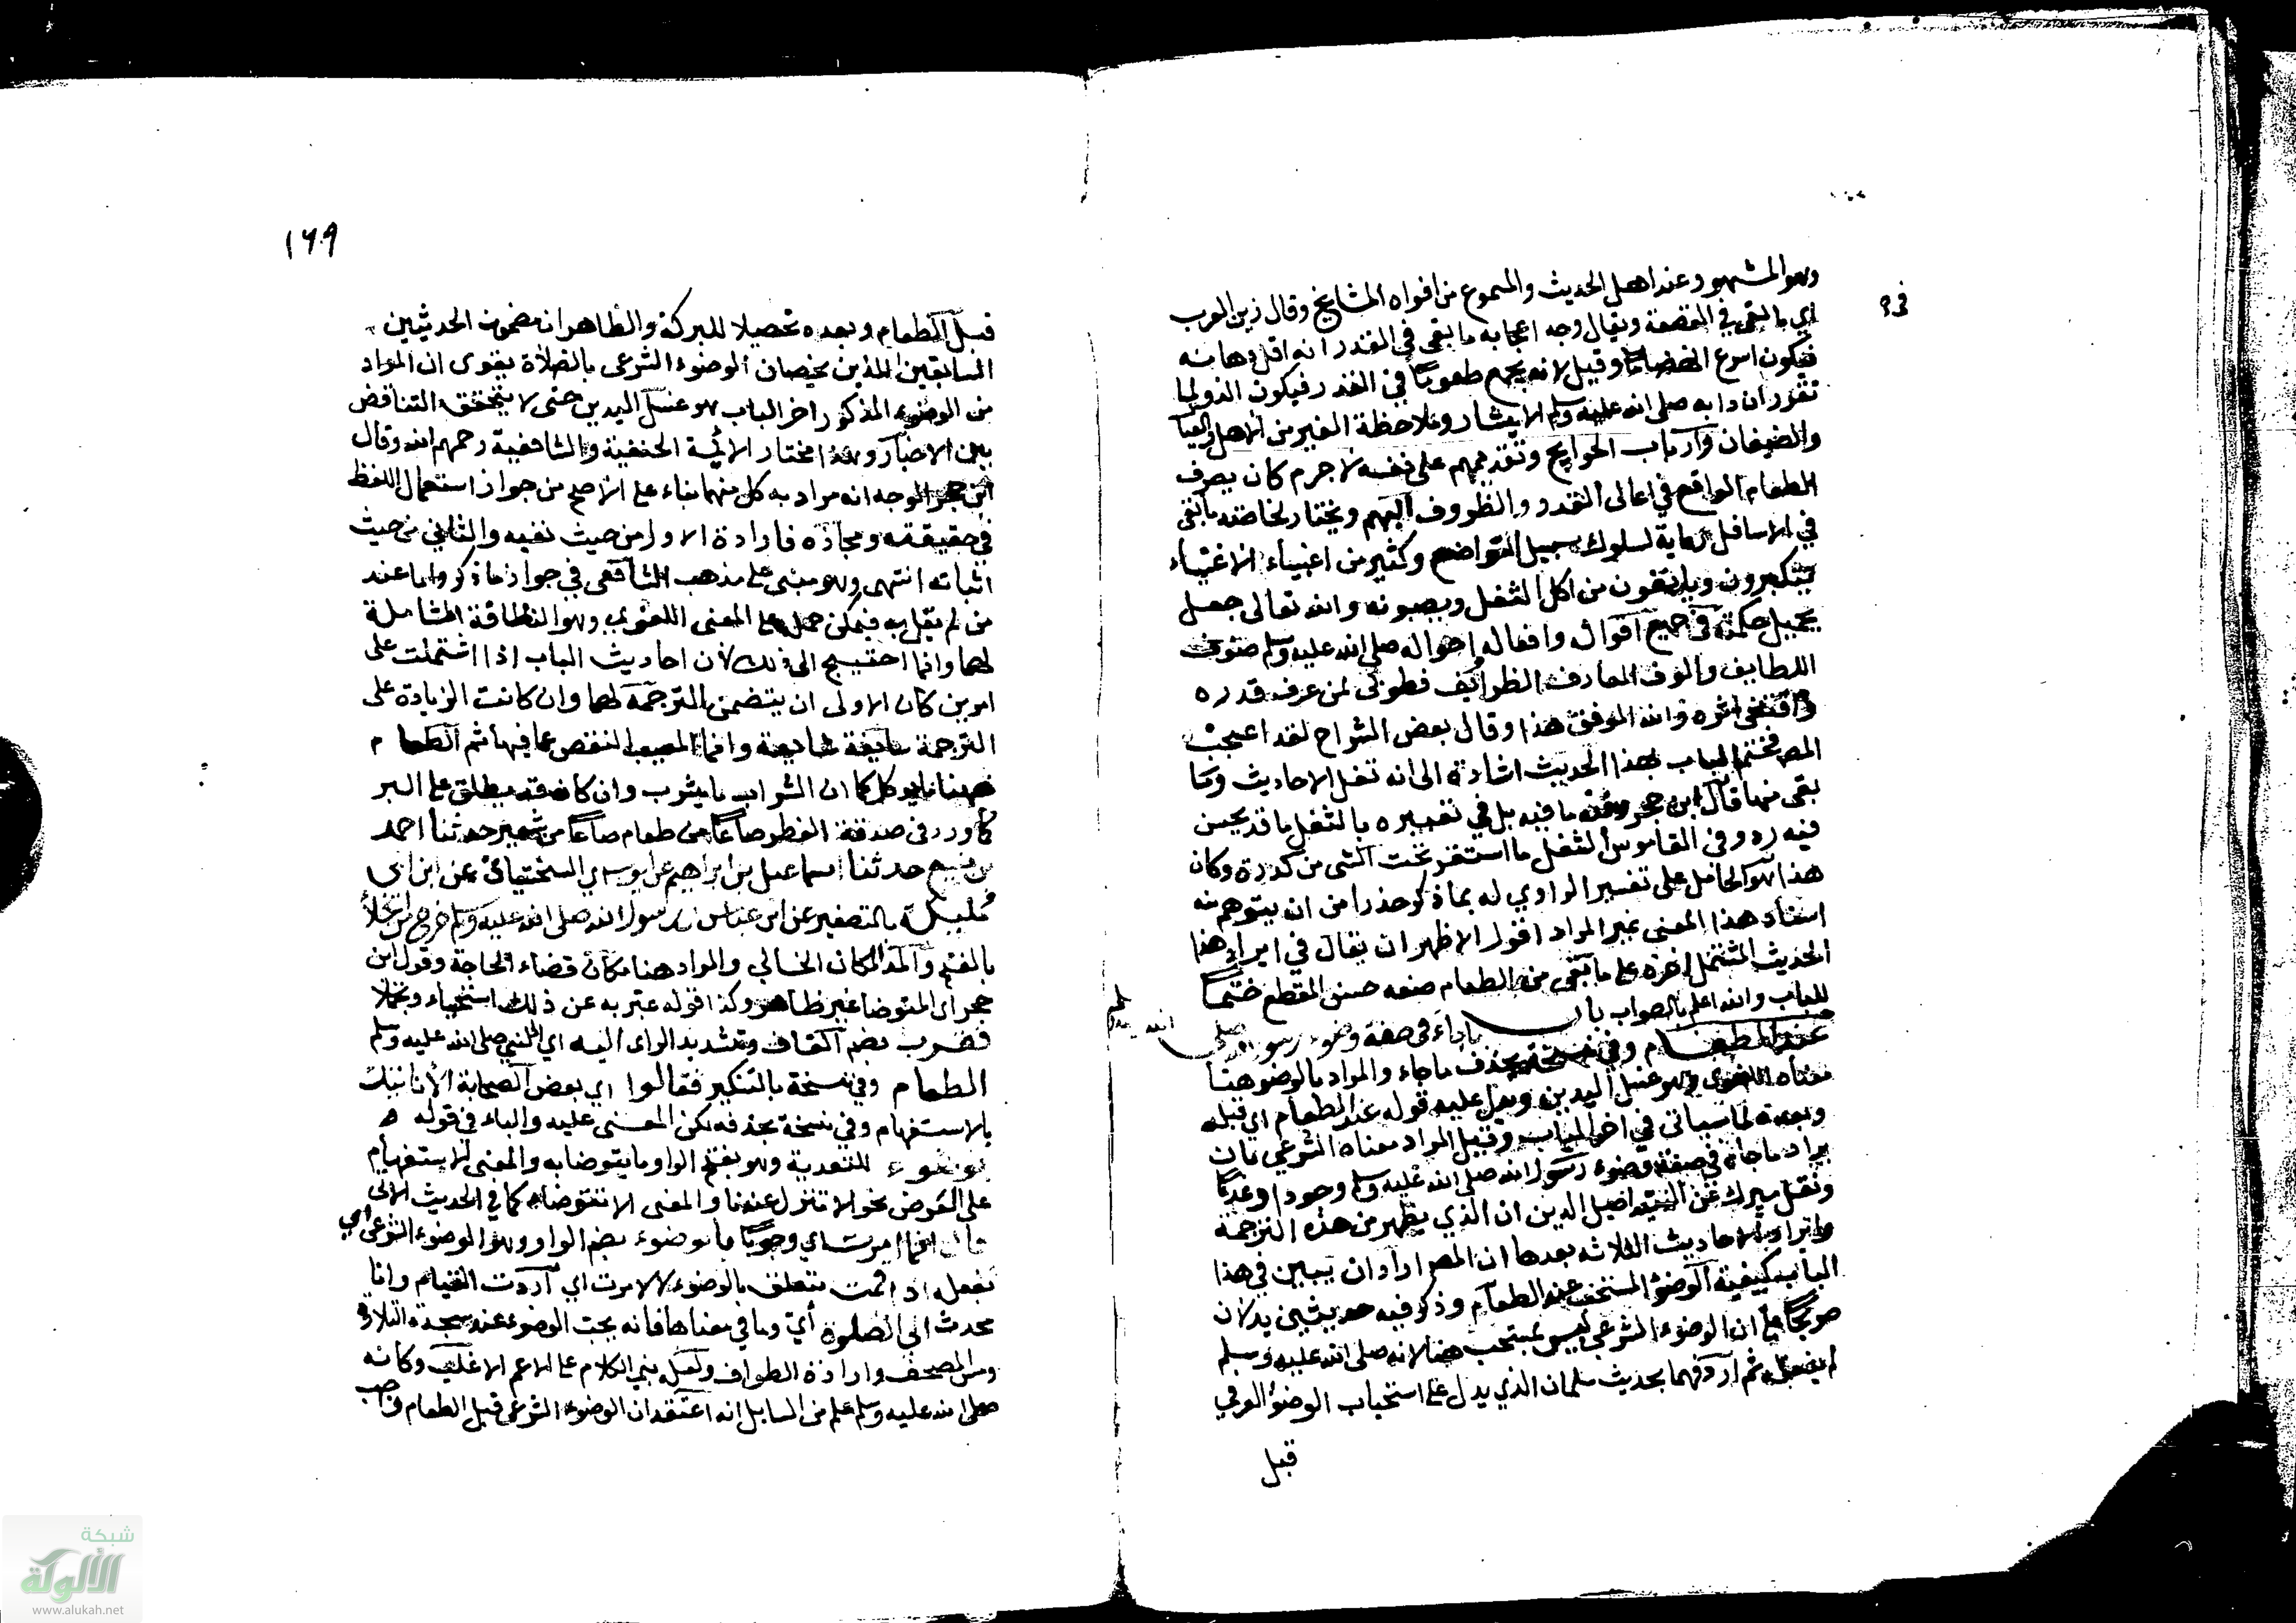 وهو المشهور عند اهل الحديث والمسموع من افواه المشايخ وقال زين العرب
اي ما بقى في القصعة ويقال وجه اعجابه ما بقى في القدر انه اقل دهانة
فيكون اسرع انهضاما وقيل لانه يجمع طعوما في القدر فيكون الذ ولما
تقرر ان دابه صلى الله عليه وسلم الايثار وملاحظة الغير من الاهل والعيال
والضيفان وارباب الحوايج وتقديمهم على نفسه لا جرم كان يصرف
الطعام الواقع في اعالى القدور والظروف اليهم ويختار لخاصته ما بقى
في الاسافل رعاية لسلوك سبيل التواضع وكثير من اغبياء الاغنياء
يتكبرون ويانفون من اكل الثفل ويصبونه والله تعالى جعل
بجميل حكمته في جميع اقواله وافعاله واحواله صلى الله عليه وسلم صنوف
اللطايف والوف المعارف الظرائف فطوبى لمن عرف قدره
واقتفى اثره والله الموفق هذا وقال بعض الشراح لقد اعجب
المص فختم الباب بهذا الحديث اشارة الى انه ثفل الاحاديث وما
بقى منها قال ابن حجر وفيه ما فيه بل في تعبيره بالثفل ما قد يحسن
فيه رده وفي القاموس الثفل ما استقر تحت الشى من كدرة وكان
هذا هو الحامل على تفسير الراوي له بما ذكر حذرا من ان يتوهم منه
اسناد هذا المعنى غير المراد اقول الاظهر ان يقال في ايراد هذا
الحديث المشتمل اخره على ما بقى من الطعام صنعه حسن المقطع ختما
للباب والله اعلم بالصواب باب ما جاء في صفة وضوء رسول الله صلى الله عليه وسلم
عند الطعام وفي نسخة بحذف ما جاء والمراد بالوضو هنا
معناه اللغوي وهو غسل اليدين ويدل عليه قوله عند الطعام اي قبله
وبعده لما سياتى في اخر الباب وقيل المراد معناه الشرعي بان
يراد ما جاء في صفة وضوء رسول الله صلى الله عليه وسلم وجودا وعدما
ونقل ميرك عن السيد اصيل الدين ان الذي يظهر من هذه الترجمة
وايراد الاحاديث الثلاثة بعدها ان المص اراد ان يبين في هذا
الباب كيفية الوضو المستحب عند الطعام وذكر فيه حديثين يدلان
صريحا على ان الوضوء الشرعي ليس بمستحب هنا لانه صلى الله عليه وسلم
لم يفعله ثم اردفهما بحديث سلمان الذي يدل على استحباب الوضوء العرفي
قبل
١٦٩
قبل الطعام وبعده تحصيلا للبركة والظاهر ان مضمون الحديثين
السابقين اللذين يخصان الوضوء الشرعى بالصلاة يقوى ان المراد
من الوضوء المذكور اخر الباب هو غسل اليدين حتى لا يتحقق التناقض
بين الاخبار وهذا مختار الائمة الحنفية والشافعية رحمهم الله وقال
ابن حجر الوجه انه مراد به كل منهما بناء على الاصح من جواز استعمال اللفظ
في حقيقته ومجازه فارادة الاول من حيث نفيه والثاني من حيث
اثباته انتهى وهو مبنى على مذهب الشافعى في جواز ما ذكر واما عند
من لم يقل به فيمكن حمله على المعنى اللغوي وهو النظافة الشاملة
لهما وانما احتيج الى ذلك لان احاديث الباب اذا اشتملت على
امرين كان الاولى ان يتضمن الترجمة لهما وان كانت الزيادة على
الترجمة سايغة شايعة وانما المعيب النقص عما فيها ثم الطعام
ههنا ما يوكل كما ان الشراب ما يشرب وان كان قد يطلق على البر
كما ورد في صدقة الفطر صاعا من طعام صاعا من شعير حدثنا احمد
بن منيع حدثنا اسماعيل بن ابراهيم عن ايوب اي السختيانى عن ابن ابى
مليكة بالتصغير عن ابن عباس ان رسول الله صلى الله عليه وسلم خرج من الخلاء
بالفتح والمد المكان الخالي والمراد هنا مكان قضاء الحاجة وقول ابن
حجر اي المتوضا غير ظاهر وكذا قوله عبر به عن ذلك استحياء وتجملا
فقرب بضم القاف وتشديد الراى اليه اي النبي صلى الله عليه وسلم
الطعام وفي نسخة بالتنكير فقالوا اي بعض الصحابة الا ناتيك
بالاستفهام وفي نسخة بحذفه لكن المعنى عليه والباء في قوله
بوضوء للتعدية وهو بفتح الواو ما يتوضا به والمعنى الاستفهام
على العرض نحو الا تنزل عندنا والمعنى الا تتوضا كما في الحديث الاتى
قال انما امرت اي وجوبا بالوضوء بضم الواو وهو الوضوء الشرعي اي
بفعله اذا قمت متعلق بالوضوء لا لامرت اي اردت القيام وانا
محدث الى الصلوة اي وما في معناها فانه يجب الوضوء عند سجدة التلاوة
ومس المصحف وارادة الطواف ولعله بنى الكلام على الاعم الاغلب وكانه
صلى الله عليه وسلم علم من السايل انه اعتقد ان الوضوء الشرعي قبل الطعام واجب
شبكة
الألوكة
www.alukah.net